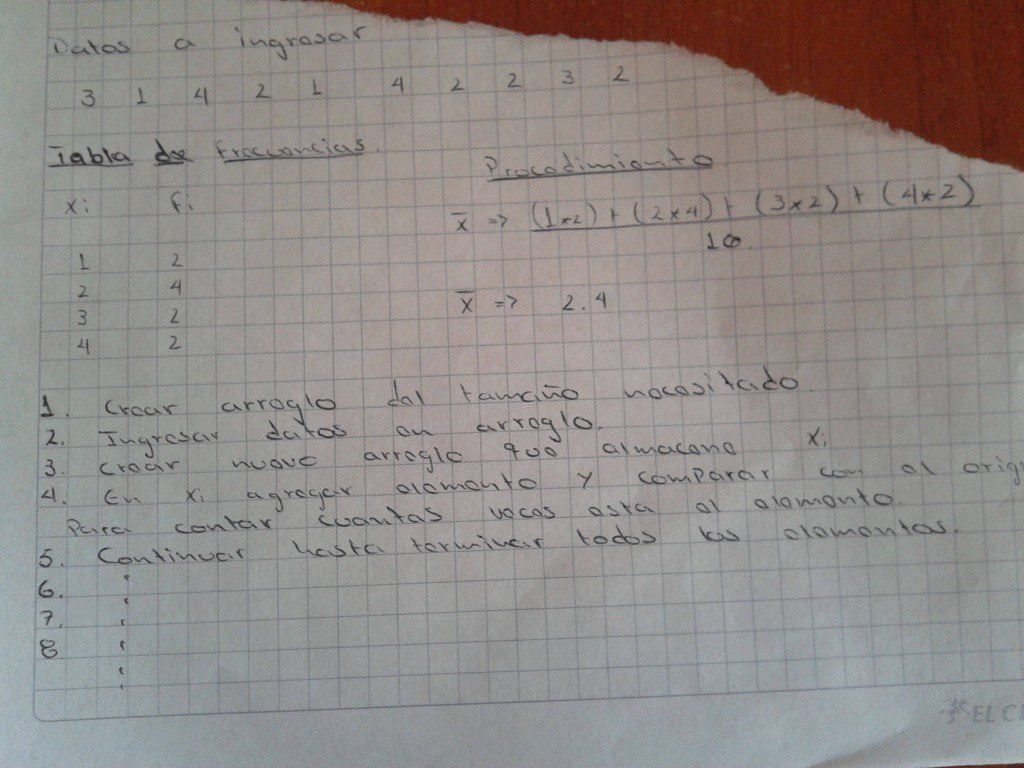 Datos a ingresar
3 1 4 2 1 4 2 2 3 2
Tabla de Frecuencias.
xi fi
1 2
2 4
3 2
4 2
Procedimiento
x̄ => (1*2) + (2*4) + (3*2) + (4*2)
10.
x̄ => 2.4
1. Crear arreglo del tamaño necesitado.
2. Ingresar datos en arreglo.
3. Crear nuevo arreglo que almacene xi
4. En xi agregar elemento y comparar con el orig
Para contar cuantas veces esta el elemento.
5. Continuar hasta terminar todos los elementos.
6.
7.
8
EL C